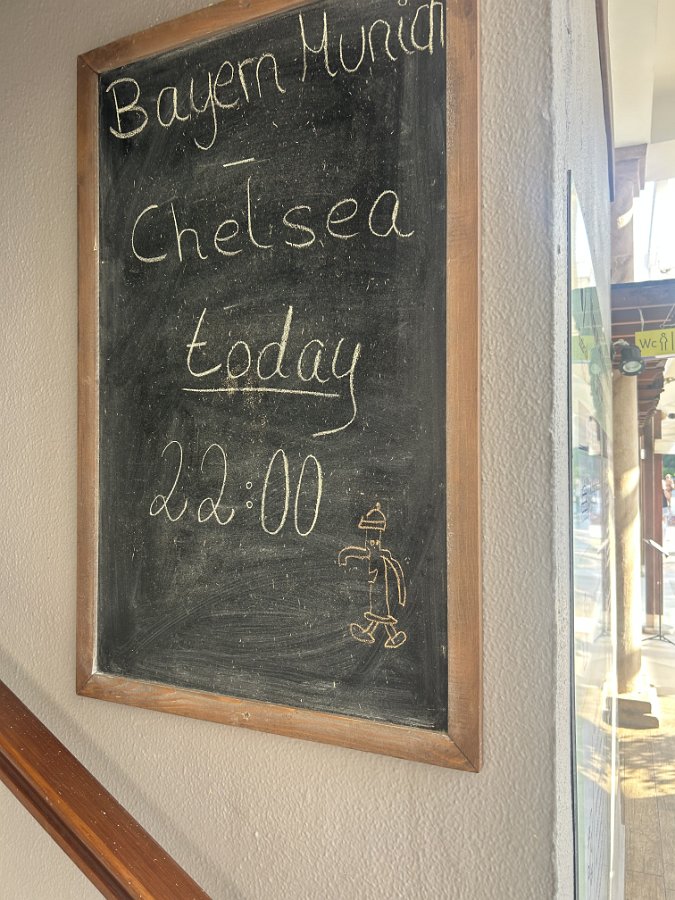 Bayern Munich
-
Chelsea
today
22:00
WC